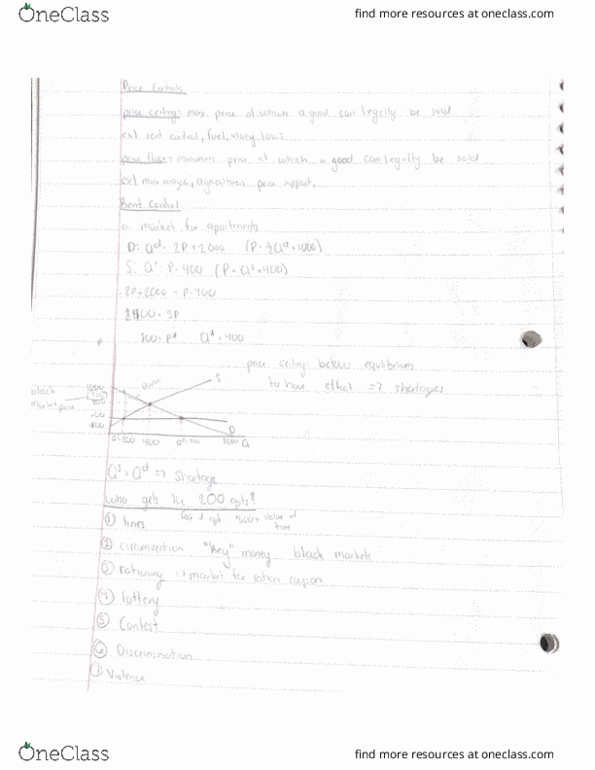 OneClass
find more resources at oneclass.com
Price Controls
price ceiling: max. price at which a good can legally be sold
ex) rent control, fuel, usury laws
price floor: minimum price at which a good can legally be sold
ex) min wages, agricultural price support.
Rent Control
market for apartments
D: Qd = -2P+2000 (P = -½Qd+1000)
S: Qs = P-400 (P = Qs+400)
-2P+2000 = P-400
2400 = 3P
800 = P* Q* = 400
price ceiling below equilibrium
to have effect => shortages
P
1000
black
market price
800
600
400
S
D
400
2000 Q
Qs > Qd => Shortage
Who gets the 200 apts?
value of
time
① lines
② circumvention "key" money black markets
③ rationing => market for ration coupon
④ lottery
⑤ Contest
⑥ Discrimination
Violence
OneClass
find more resources at oneclass.com